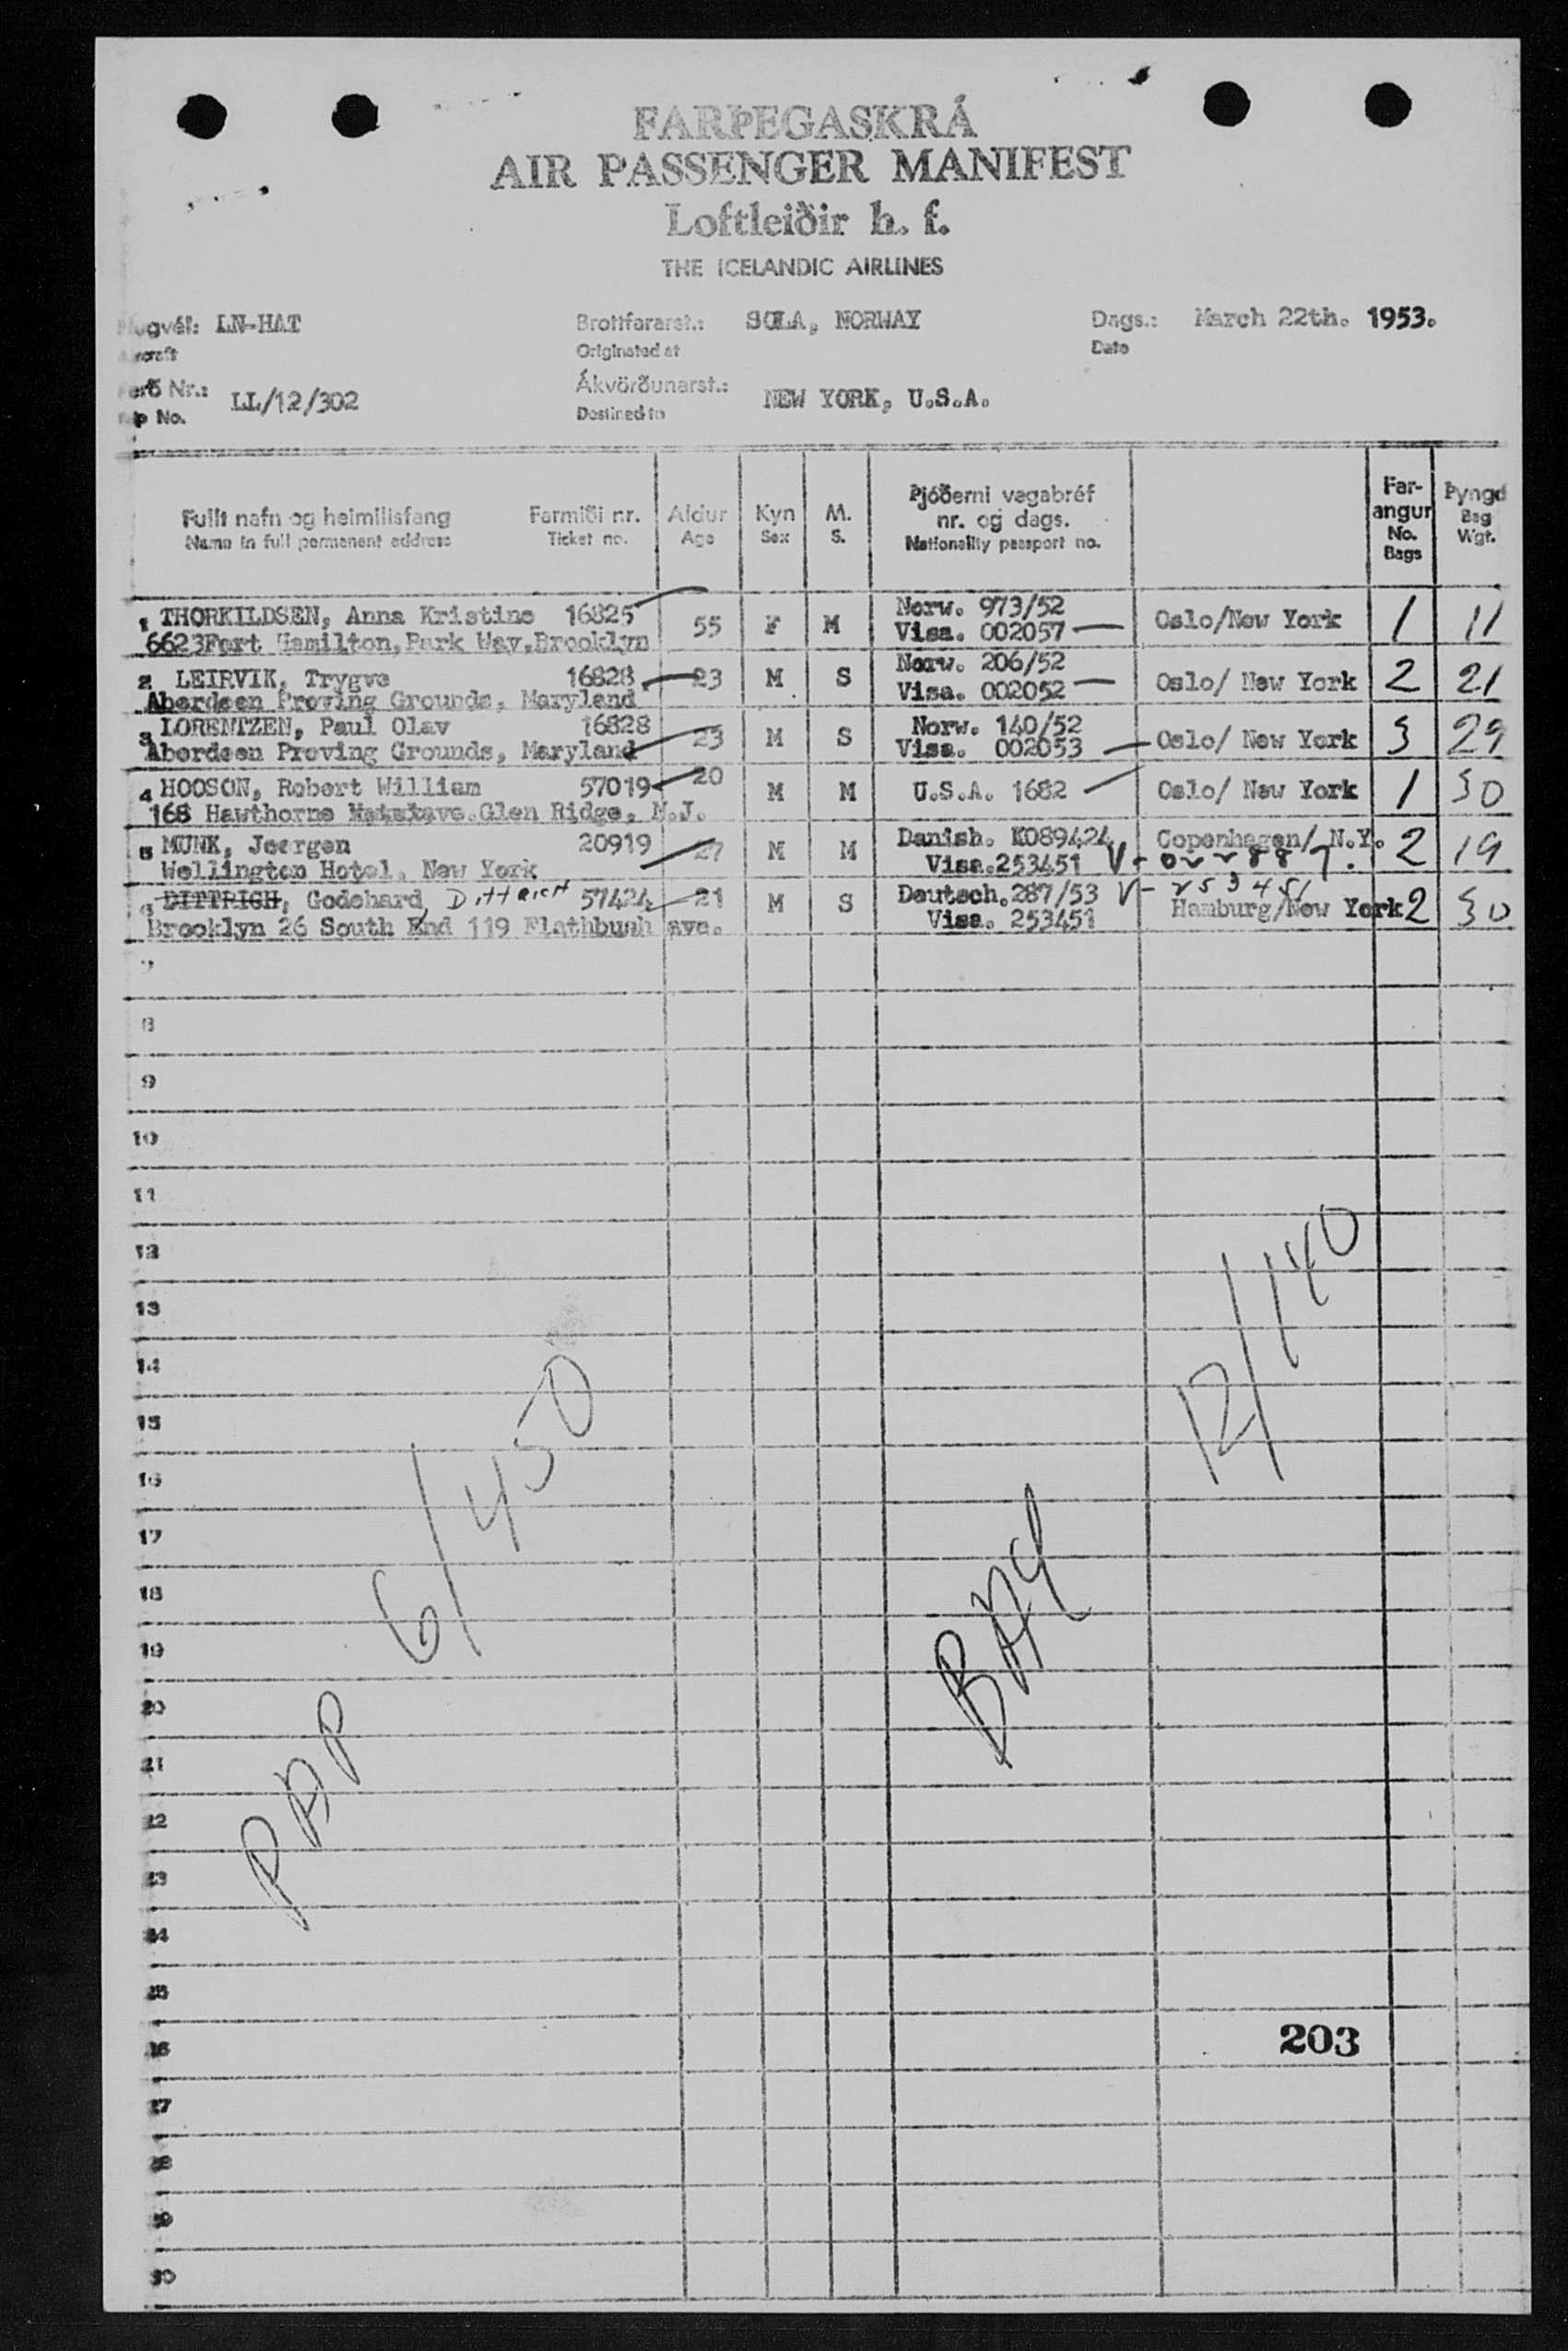 FARÞEGASKRÁ
AIR PASSENGER MANIFEST
Loftleiðir h. f.
THE ICELANDIC AIRLINES
LN-HAT Brottfararst.: SOLA, NORWAY Dags.: March 22th. 1953.
Originated at Date
Nr.: LL/12/302 Ákvörðunarst.: NEW YORK, U.S.A.
No. Destined to
Fullt nafn og heimilisfang Farmiði nr. Aldur Kyn M. Þjóðerni vegabréf nr. og dags. Far-angur Þyngd
Name in full permanent address Ticket no. Age Sex S. Nationality passport no. No. Bags Bag Wgt.
1 THORKILDSEN, Anna Kristine 16825 55 F M Norw. 973/52 Oslo/New York 1 11
6623Fort Hamilton, Park Way, Brooklyn Visa. 002057
2 LEIRVIK, Trygve 16828 23 M S Norw. 206/52 Oslo/ New York 2 21
Aberdeen Proving Grounds, Maryland Visa. 002052
3 LORENTZEN, Paul Olav 16828 23 M S Norw. 140/52 Oslo/ New York 3 29
Aberdeen Proving Grounds, Maryland Visa. 002053
4 HOOSON, Robert William 57019 20 M M U.S.A. 1682 Oslo/ New York 1 30
168 Hawthorne ave. Glen Ridge, N.J.
5 MUNK, Joergen 20919 27 M M Danish. K089424 Copenhagen/ N.Y. 2 19
Wellington Hotel, New York Visa.253451 V-022887.
6 DITTRICH, Godehard Dittrich 57424 21 M S Deutsch.287/53 V-253451 Hamburg/New York 2 30
Brooklyn 26 South End 119 Flathbush ave. Visa. 253451
7
8
9
10
11
12
13
14
15
16
17
18
19
20
21
22
23
24
25
26
27
28
29
30
PAP 6/450
BAG 12/140
203